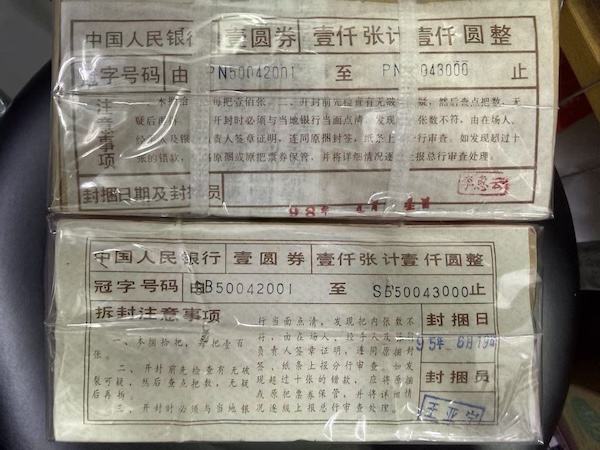 中国人民银行 壹圆券 壹仟张计壹仟圆整
冠字号码 由 PN50042001 至 PN 043000 止
注意事项
本捆 每把壹佰张 二、开封前先检查有无破 疑，然后盘点把数，无
疑后再拆 开封时必须与当地银行当面点清，发现 张数不符，由在场人、
经 人及银 责人签章证明，连同原捆封签，纸条上 行审查。如发现超过十
张的错款， 将原捆或原把票券保管，并将详细情况逐 报总行审查处理。
封捆日期及封捆员
李惠云
中国人民银行 壹圆券 壹仟张计壹仟圆整
冠字号码 由 SB50042001 至 SB50043000 止
拆封注意事项
一、本捆拾把，每把壹百
张。
二、开封前先检查有无破
裂可疑，然后查点把数，无疑
后再拆
三、开封时必须与当地银
行当面点清，发现把内张数不
符，由在场人、经手人及
负责人签章证明，连同原捆封
签，纸条上报分行审查，如发
现超过十张的错款，应将原捆
点原把票券保管，并将详细情
况逐级上报总行审查处理。
封捆日
95年 6月19
封捆员
王亚